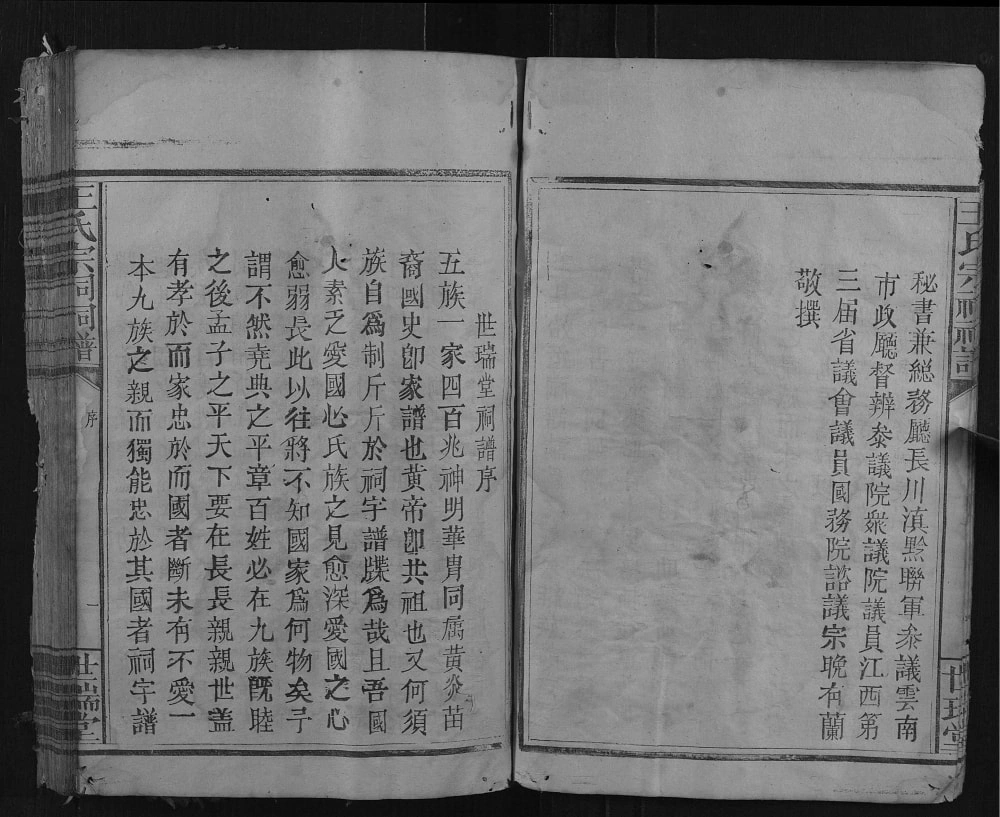 秘書兼総務廳長川滇黔聯軍叅議雲南
市政廳督辦叅議院衆議院議員江西第
三届省議會議員國務院諮議宗晚有蘭
敬撰
世瑞堂祠譜序
五族一家四百兆神明華胄同属黄炎苗
裔國史卽家譜也黄帝卽共祖也又何須
族自爲制斤斤於祠宇譜牒爲哉且吾國
人素乏愛國心氏族之見愈深愛國之心
愈弱長此以往將不知國家爲何物矣予
謂不然堯典之平章百姓必在九族旣睦
之後孟子之平天下要在長長親親世盖
有孝於而家忠於而國者斷未有不愛一
本九族之親而獨能忠於其國者祠宇譜
王氏宗祠祠譜
序
一
世瑞堂